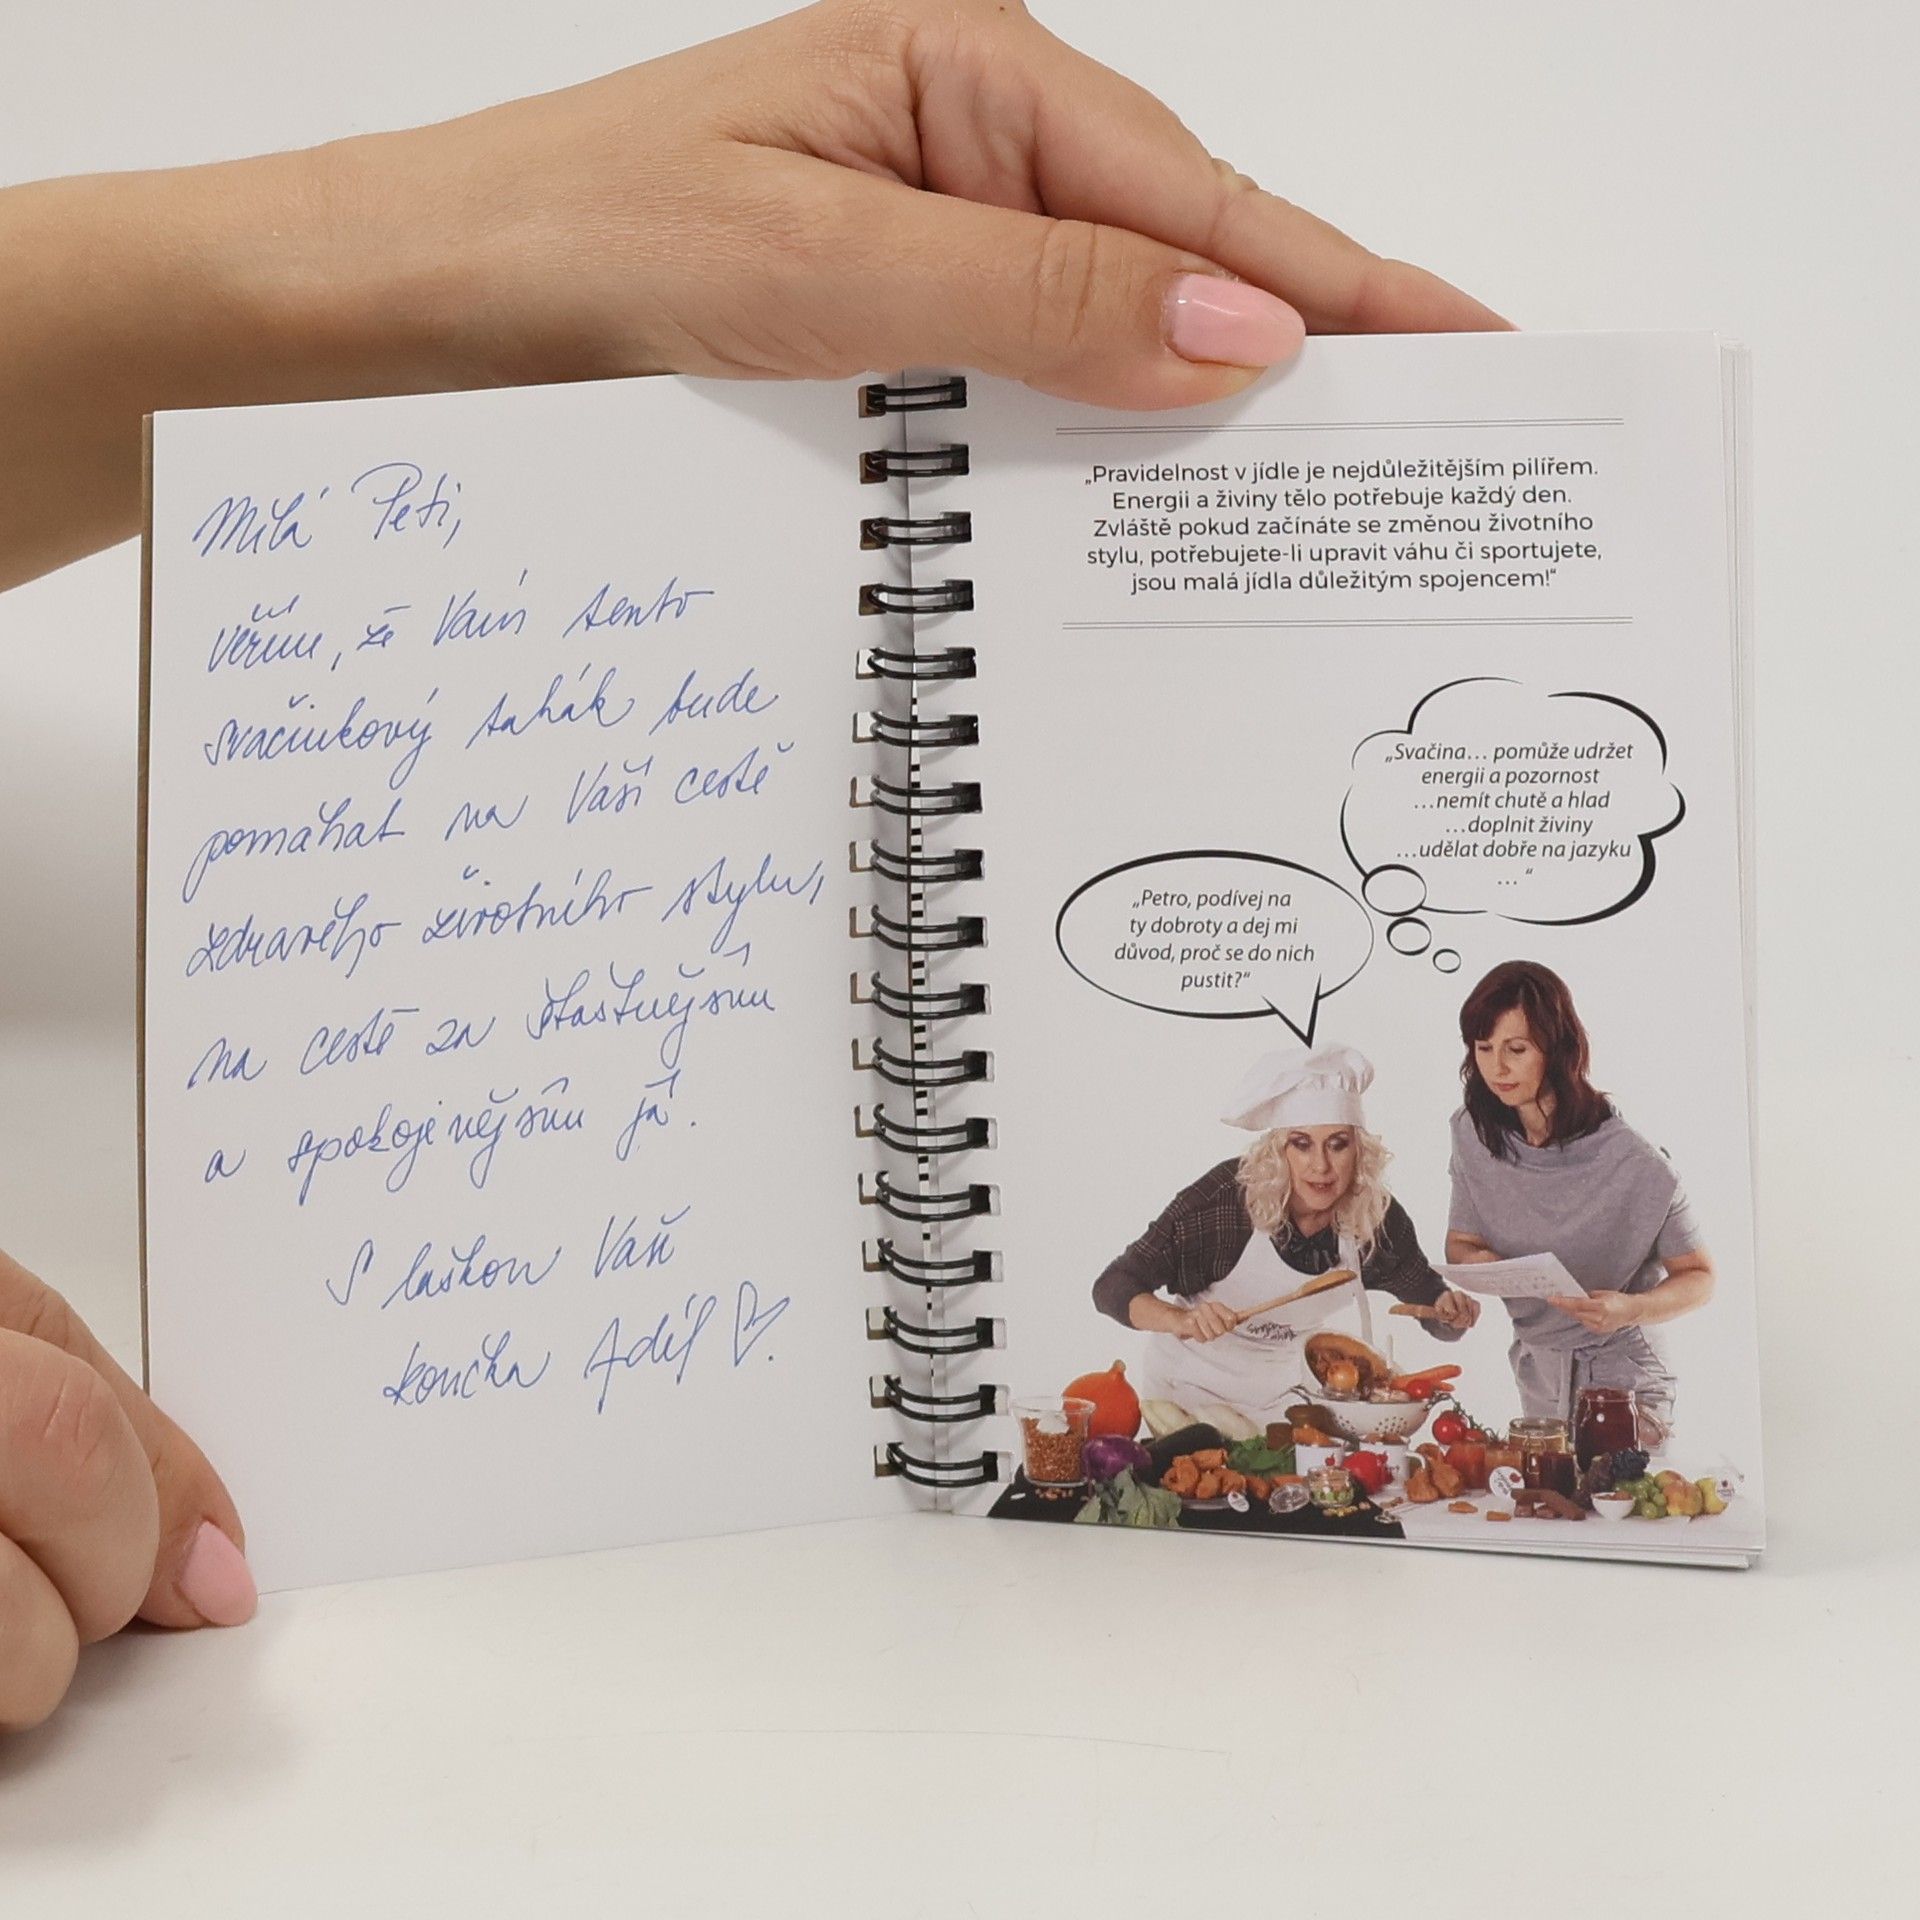 Milá Peti,
věřím, že Vám tento
svačinkový tahák bude
pomáhat na Vaší cestě
zdravého životního stylu,
na cestě za šťastnějším
a spokojenějším já.
S láskou Vaše
koučka Adél
„Pravidelnost v jídle je nejdůležitějším pilířem.
Energii a živiny tělo potřebuje každý den.
Zvláště pokud začínáte se změnou životního
stylu, potřebujete-li upravit váhu či sportujete,
jsou malá jídla důležitým spojencem!“
„Svačina... pomůže udržet
energii a pozornost
...nemít chutě a hlad
...doplnit živiny
...udělat dobře na jazyku
...“
„Petro, podívej na
ty dobroty a dej mi
důvod, proč se do nich
pustit?“